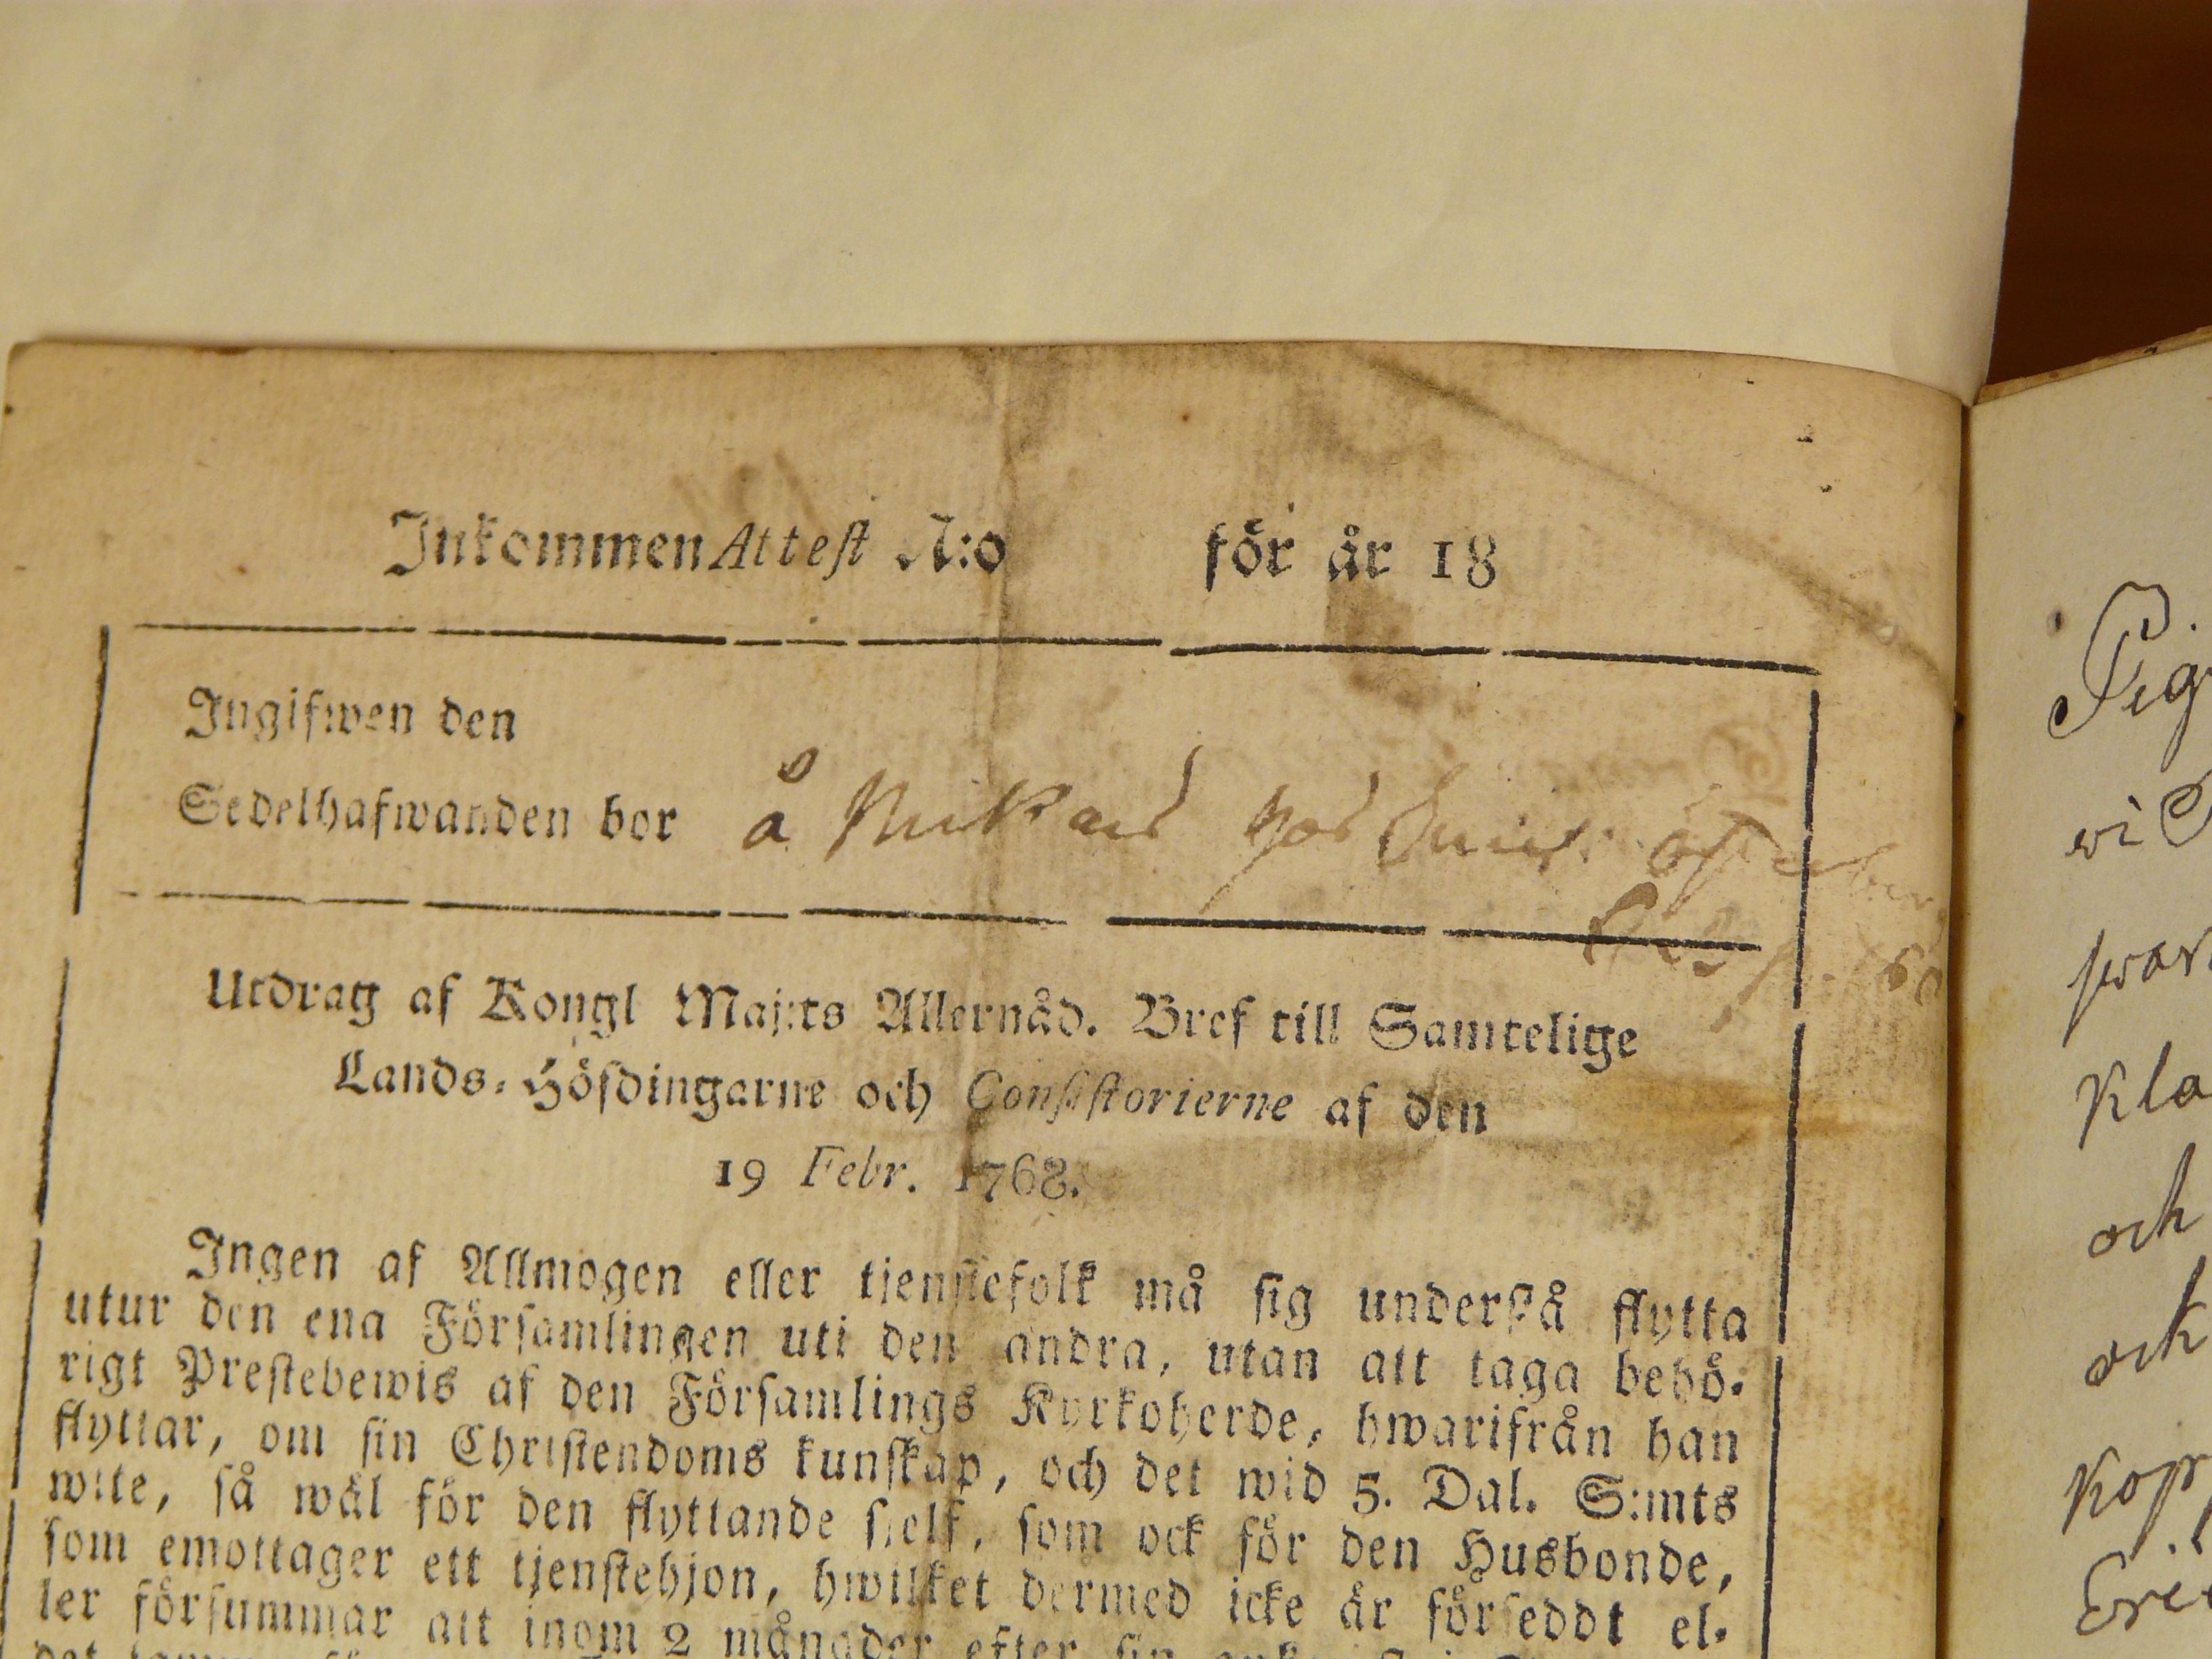 Inkommen Attest N:o för år 18
Ingifwen den
Sedelhafwanden bor å
Utdrag af Kongl Maj:ts Allernåd. Bref till Samtelige
Lands-Höfdingarne och Consistorierne af den
19 Febr. 1768.
Ingen af Allmogen eller tjenstefolk må sig understå flytta
utur den ena Församlingen uti den andra, utan att taga behö-
rigt Prestebewis af den Församlings Kyrkoherde, hwarifrån han
flyttar, om sin Christendoms kunskap, och det wid 5. Dal. S:mts
wite, så wäl för den flyttande sielf, som ock för den Husbonde,
som emottager ett tjenstehjon, hwilket dermed icke är förseddt el-
ler försummar att inom 2 månader efter sin
Pig
wi
swar
kla
och
och
kop
Eri